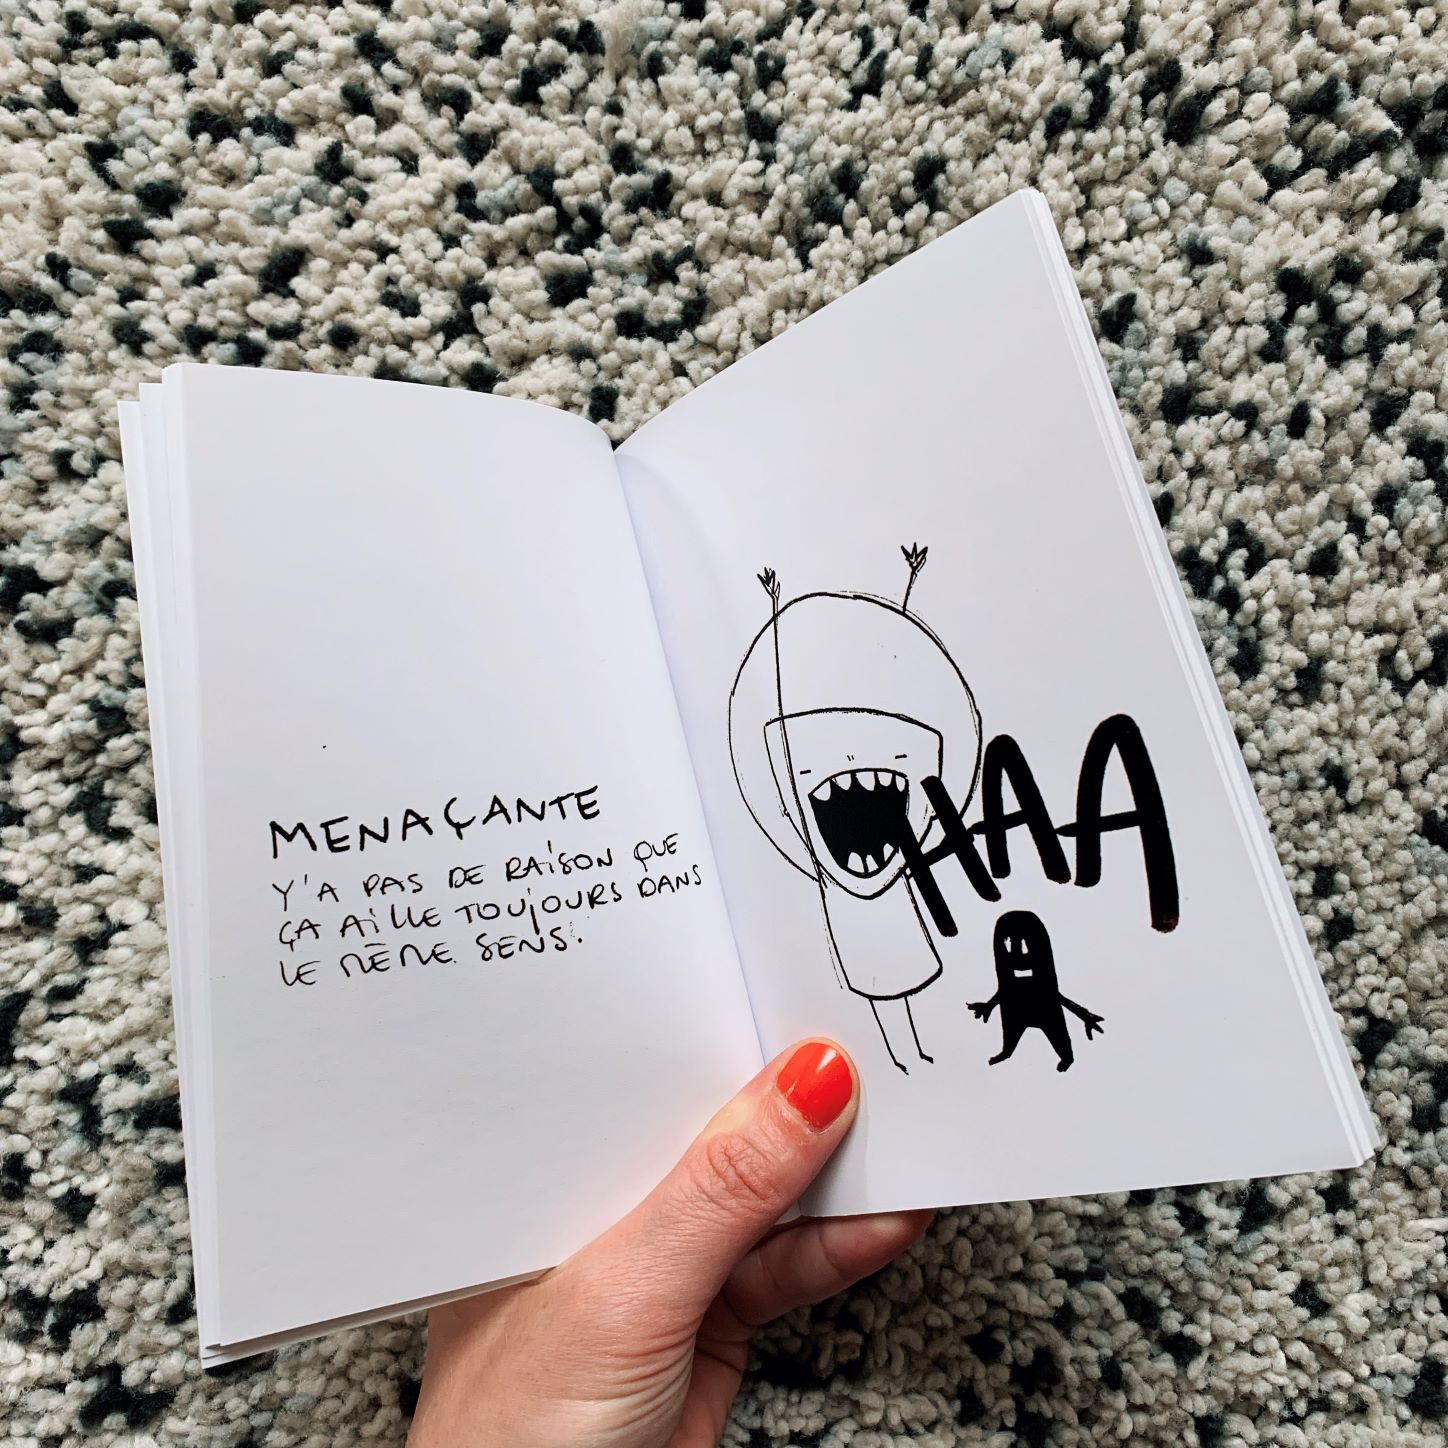 MENAÇANTE
Y'A PAS DE RAiSON QUE
ÇA AiLLE TOUjOURS DANS
LE MÊME SENS.
HAA